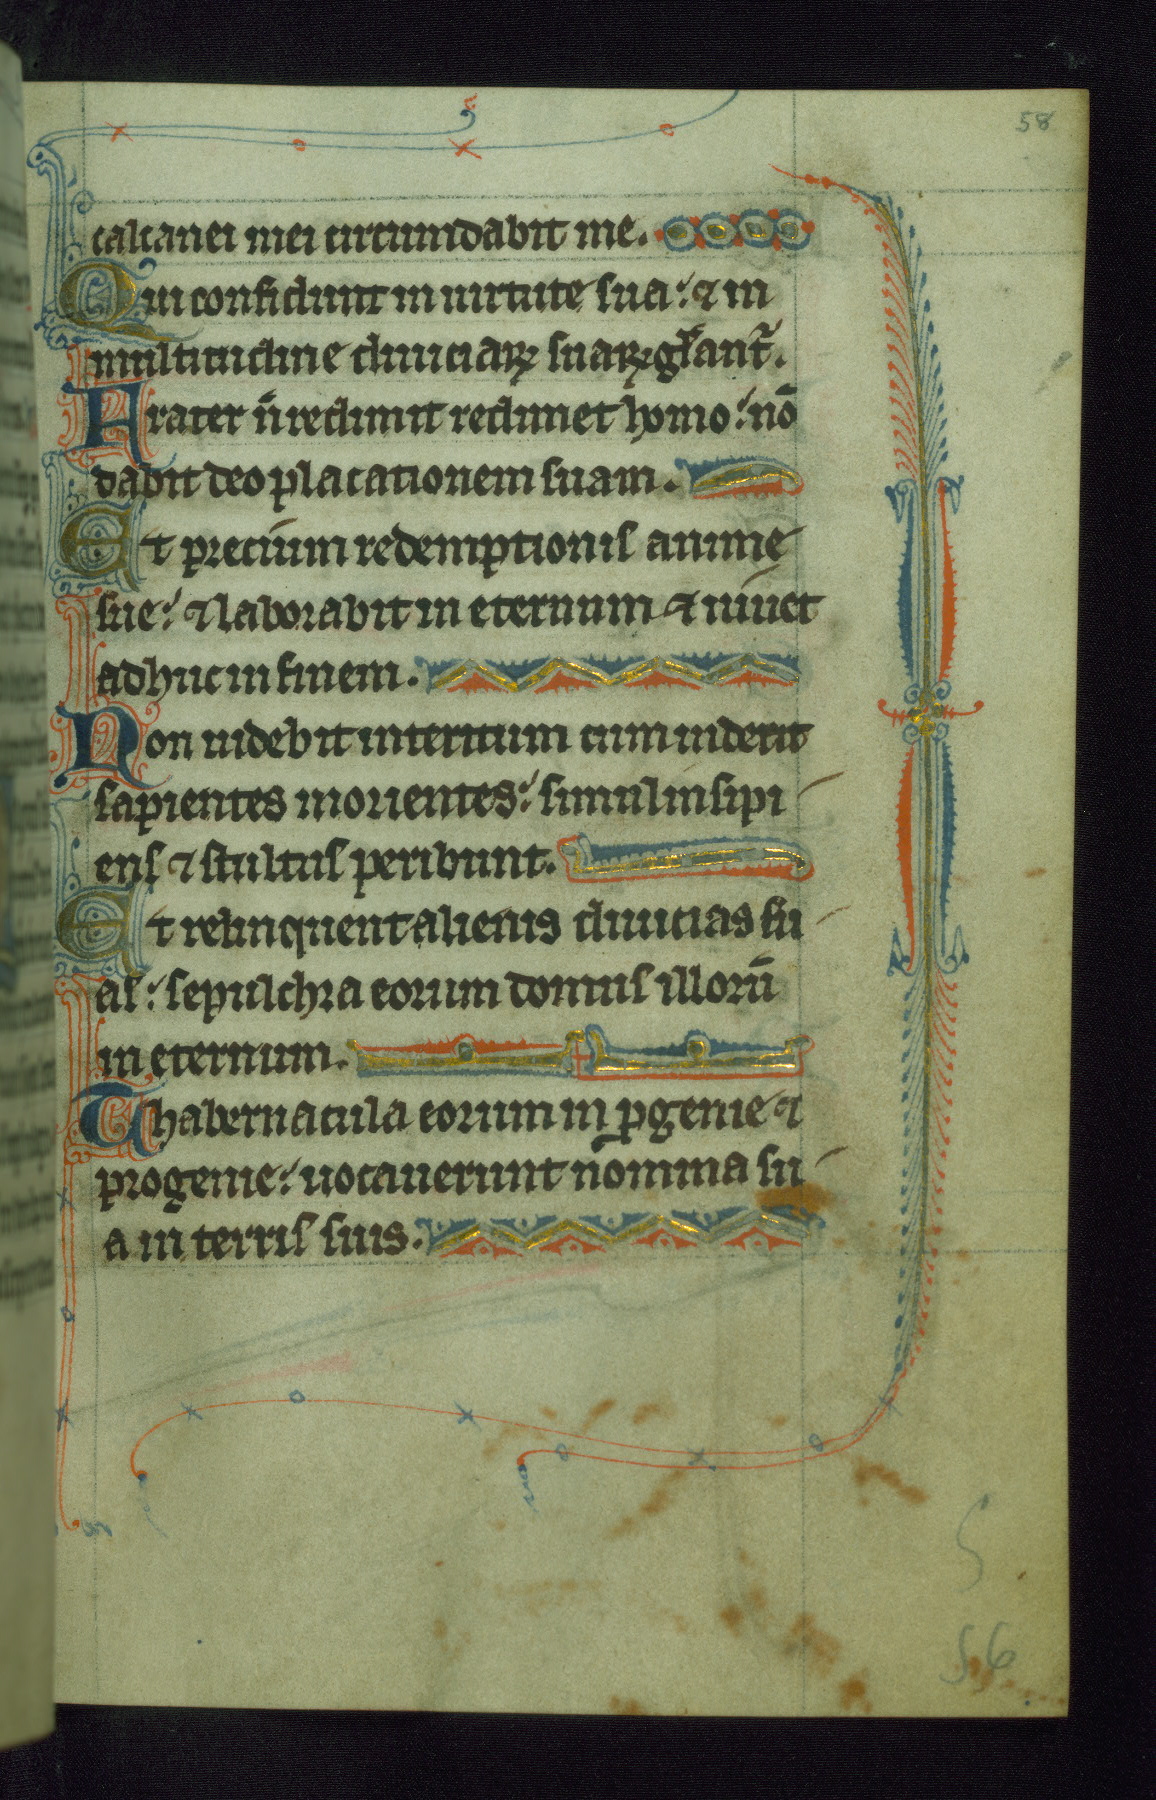 58
calcanei mei circumdabit me.
Qui confidunt in uirtute sua: ⁊ in
multitudine diuiciaꝝ suaꝝ gl̃ant̃.
Frater n̄ redimit redimet homo: nō
dabit deo placationem suam.
Et precium redemptionis anime
sue: ⁊ laborabit in eternum ⁊ uiuet
adhuc in finem.
Non uidebit interitum cum uiderit
sapientes morientes: simul insipi
ens ⁊ stultus peribunt.
Et relinquent alienis diuicias su
as: sepulchra eorum domus illorū
in eternum.
Thabernacula eorum in ꝓgenie ⁊
progenie: uocauerunt nomina su
a in terris suis.
56